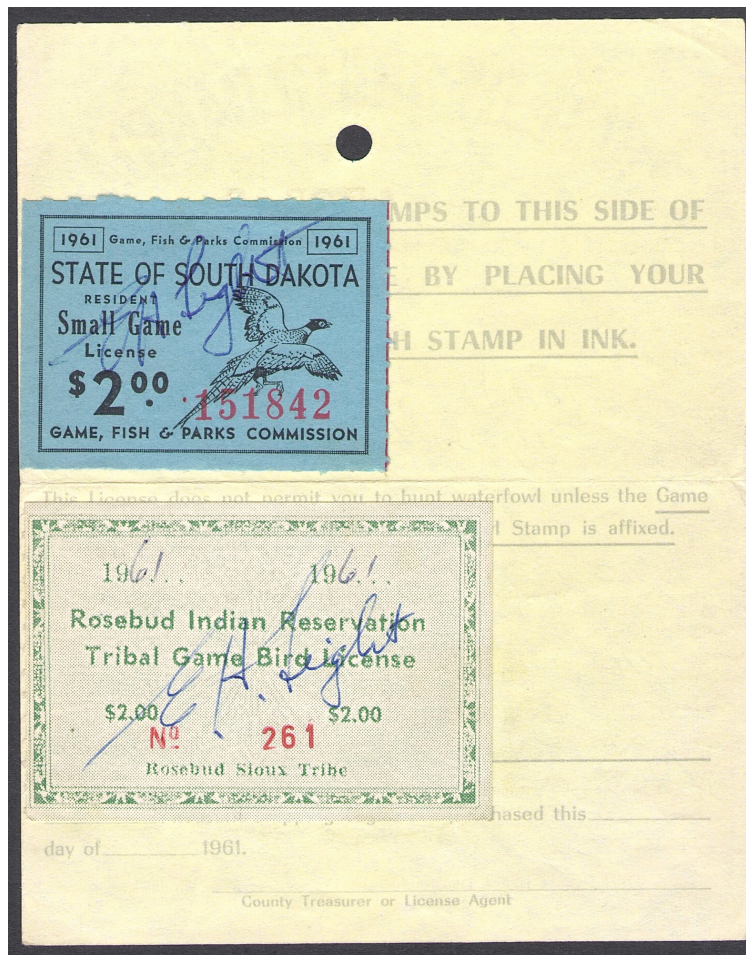 MPS TO THIS SIDE OF
BY PLACING YOUR
H STAMP IN INK.
1961 Game, Fish & Parks Commission 1961
STATE OF SOUTH DAKOTA
RESIDENT
Small Game
License
$2.00
151842
GAME, FISH & PARKS COMMISSION
This License does not permit you to hunt waterfowl unless the Game
l Stamp is affixed.
1961... 1961...
Rosebud Indian Reservation
Tribal Game Bird License
E. H. Leight
$2.00 $2.00
No 261
Rosebud Sioux Tribe
hased this
day of 1961.
County Treasurer or License Agent